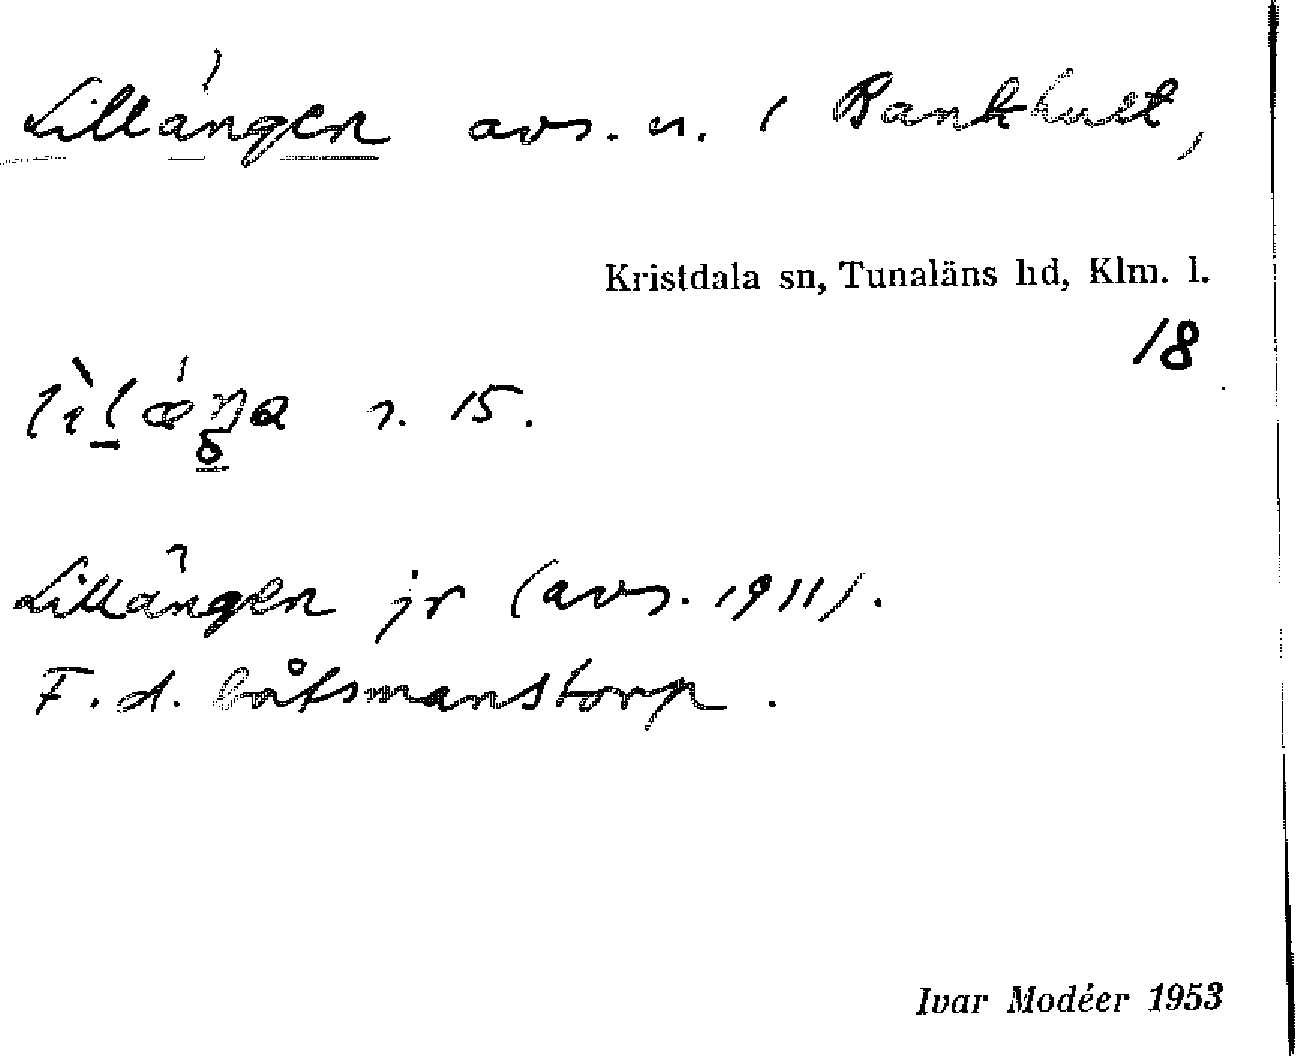 Lillängen avs. n. i Bankhult,
Kristdala sn, Tunaläns hd, Klm. l.
18
r. 15.
Lillängen jr (avs. 1911).
F. d. båtsmanstorp.
Ivar Modéer 1953